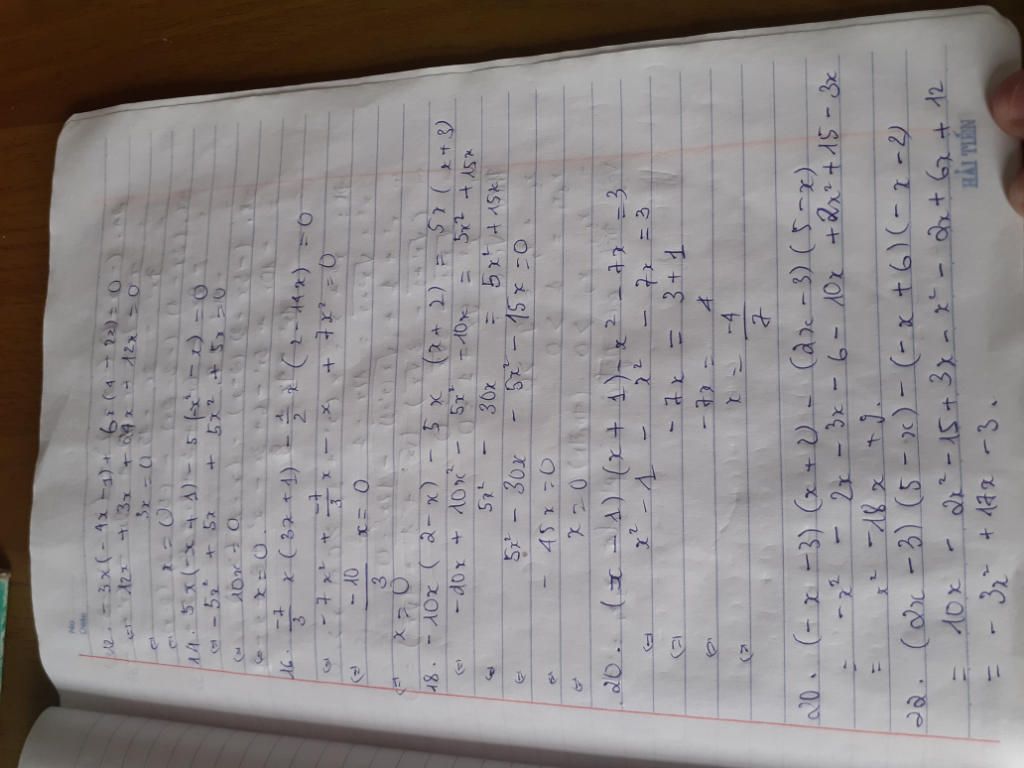 No.
Date
12. -3x(-4x-1) + 6x(4-2x) = 0
(=) 12x² + 3x + 24x - 12x² = 0
(=) 3x = 0
(=) x = 0
14. 5x(-x+1) - 5(x² - x) = 0
(=) -5x² + 5x + 5x² + 5x = 0
(=) 10x = 0
(=) x = 0
16. -7/3 x(3x+1) - 1/2 x(2-14x) = 0
(=) -7x² + -7/3 x - x + 7x² = 0
(=) -10/3 x = 0
(=) x = 0
18. -10x(2-x) - 5x(x+2) = 5x(x+3)
(=) -20x + 10x² - 5x² - 10x = 5x² + 15x
(=) 5x² - 30x = 5x² + 15x
(=) 5x² - 30x - 5x² - 15x = 0
(=) -45x = 0
(=) x = 0
20. (x-1)(x+1) - x² - 7x = 3
(=) x² - 1 - x² - 7x = 3
(=) -7x = 3 + 1
(=) -7x = 4
(=) x = -4/7
20. (-x-3)(x+2) - (2x-3)(5-x)
= -x² - 2x - 3x - 6 - 10x + 2x² + 15 - 3x
= x² - 18x + 9.
22. (2x-3)(5-x) - (-x+6)(-x-2)
= 10x - 2x² - 15 + 3x - x² - 2x + 6x + 12
= -3x² + 17x - 3.
HẢI TIẾN